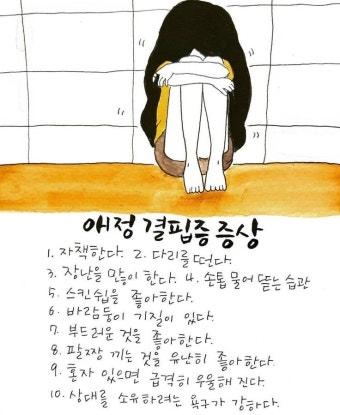 애정 결핍증 증상
1. 자책한다. 2. 다리를 떤다.
3. 장난을 많이 한다. 4. 손톱 물어 뜯는 습관
5. 스킨쉽을 좋아한다.
6. 바람둥이 기질이 있다.
7. 부드러운 것을 좋아한다.
8. 팔짱 끼는 것을 유난히 좋아한다.
9. 혼자 있으면 급격히 우울해 진다.
10. 상대를 소유하려는 욕구가 강하다.